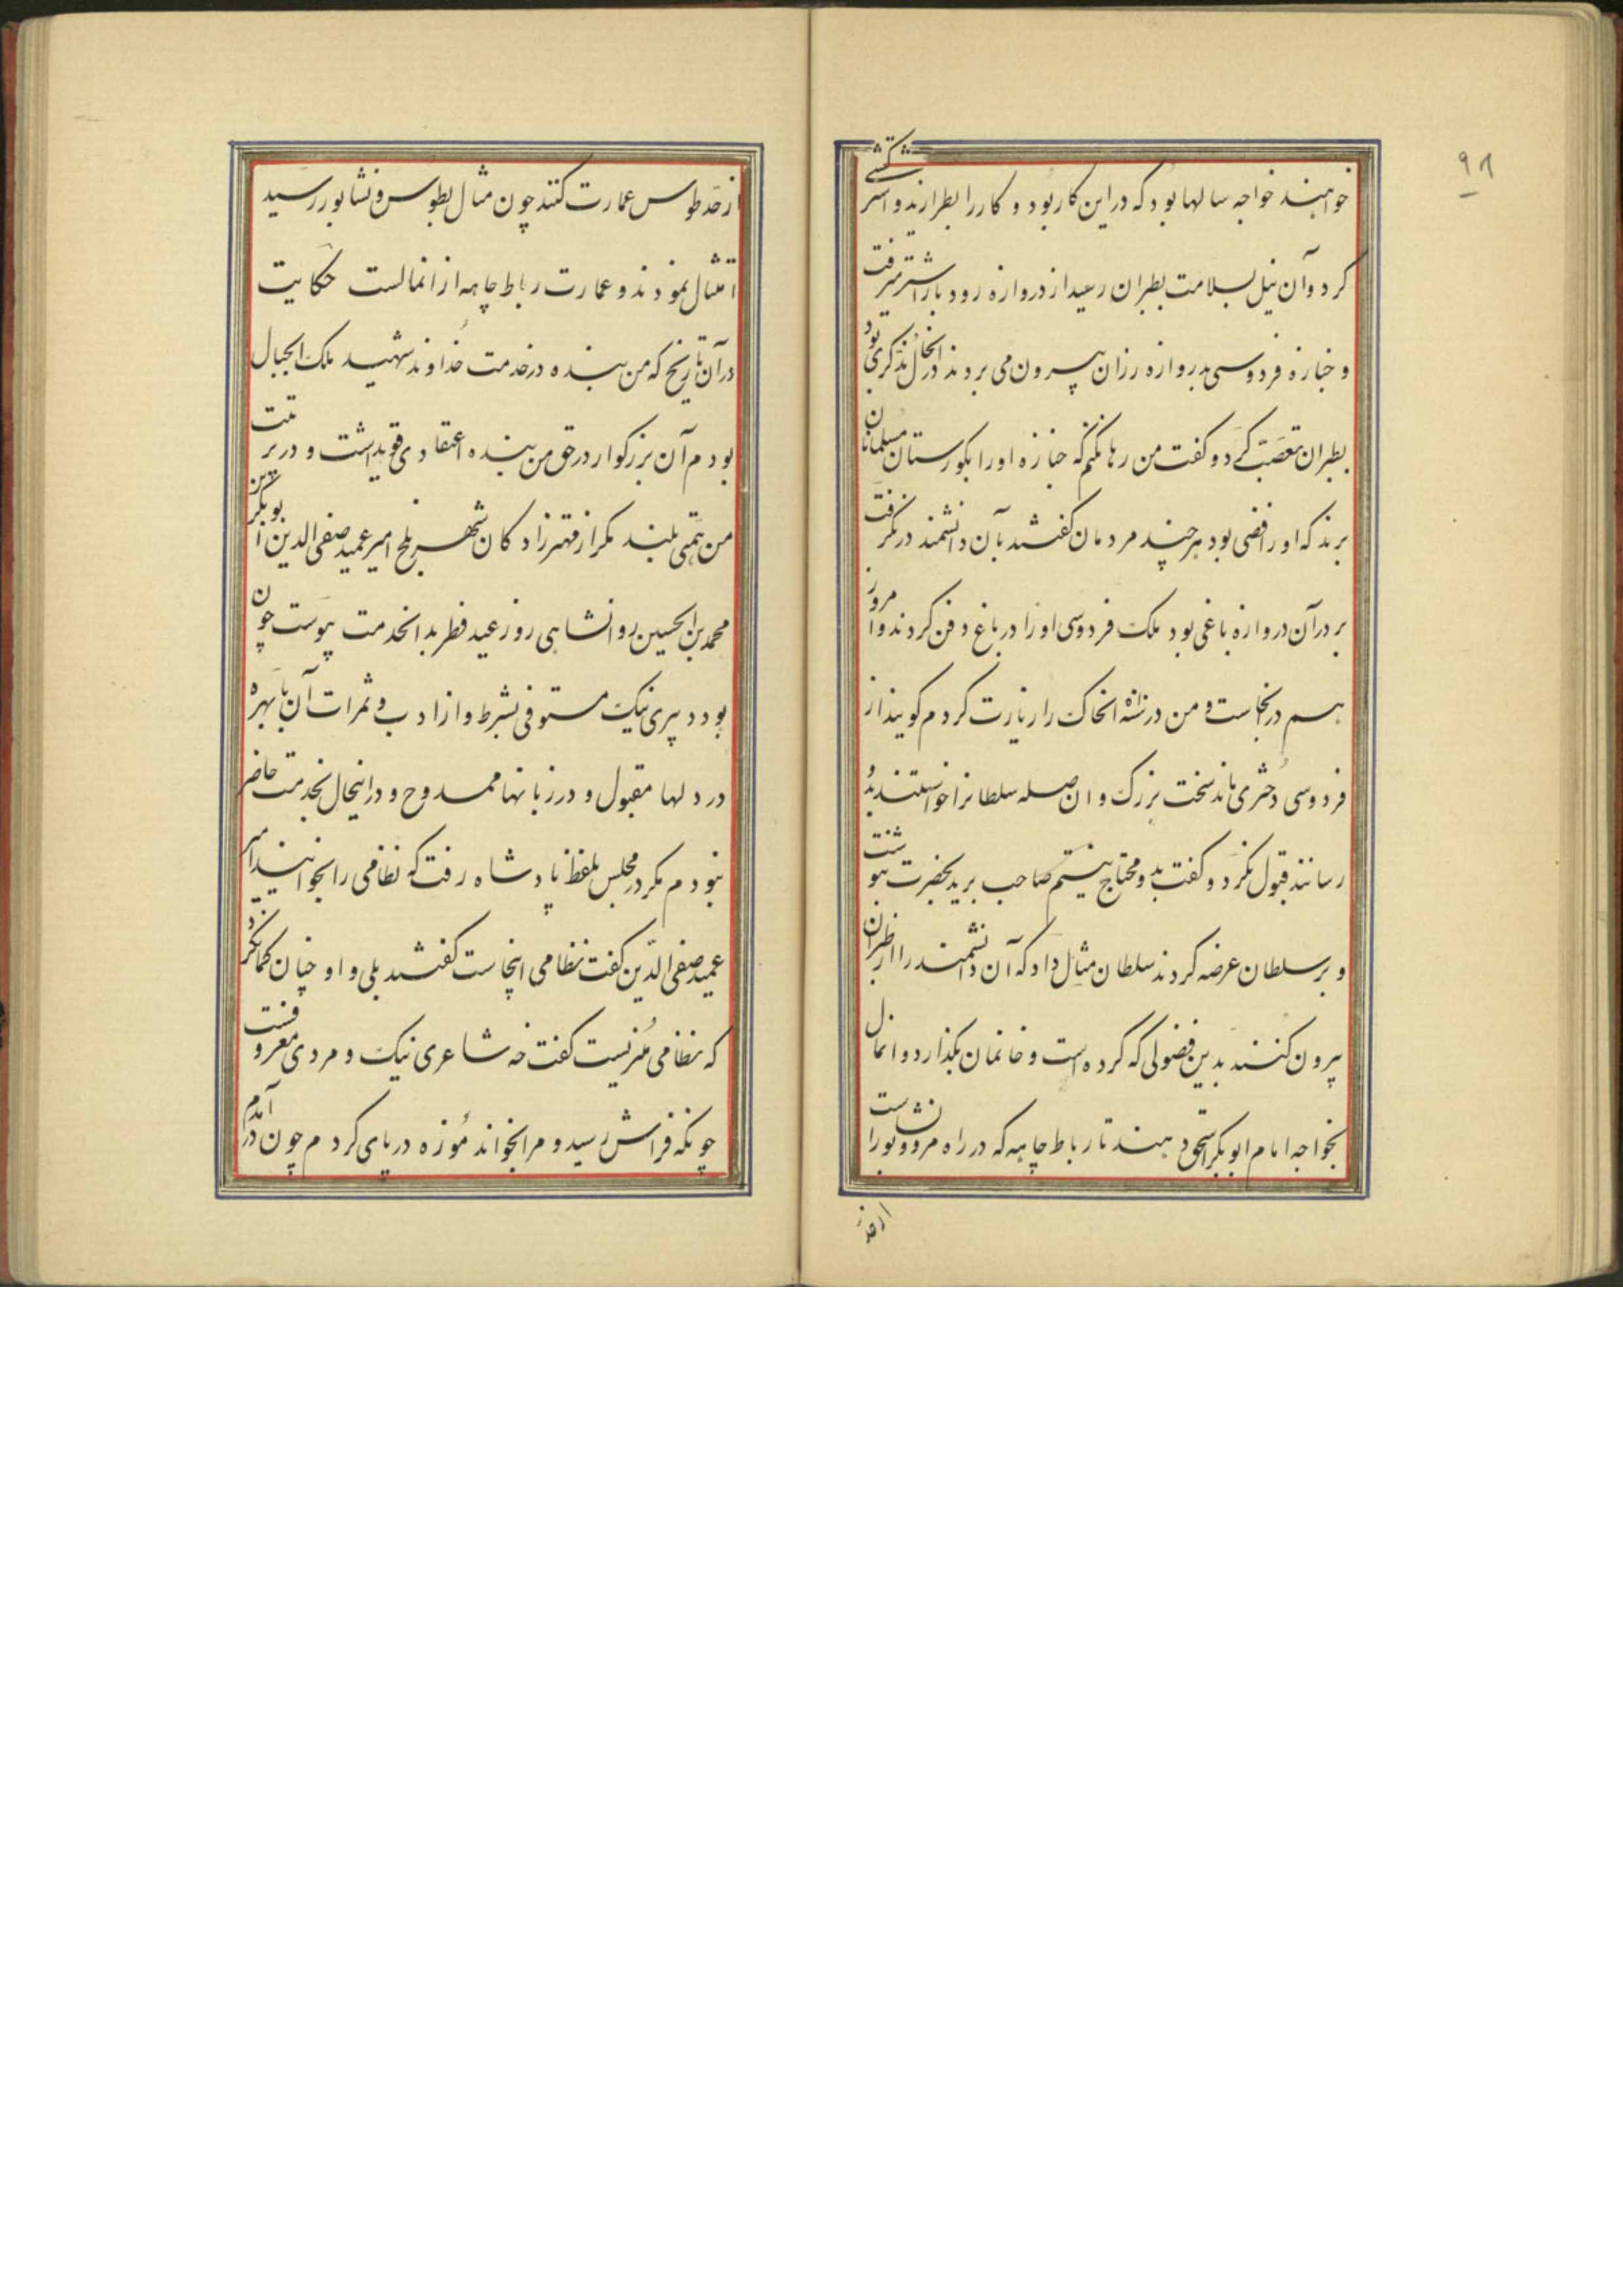 ۹۸
خواهند خواجه سالها بود که در این کار بود و کار را بطرازید و اشتر گسی
کرد و آن نیل بسلامت بطبران رسید از دروازه رودبار اشتر میرفت
و جنازه فردوسی بدروازه رزان بیرون می بردند در انحال مذکری بود
بطبران تعصب کرد و گفت من رها نکنم که جنازه او را بکورستان مسلمانان
برند که او رافضی بود هر چند مردمان گفتند بآن دانشمند در نگرفت
بر در آن دروازه باغی بود ملک فردوسی او را در باغ دفن کردند و امروز
هم در انجاست و من در سنه انخاک را زیارت کردم گویند از
فردوسی دختری ماند سخت بزرگ و ان صله سلطانرا خواستند بدو
رسانند قبول نکرد و گفت بدو محتاج نیستم صاحب برید بحضرت بنوشت
و بر سلطان عرضه کردند سلطان مثال داد که آن دانشمند را از طبران
بیرون کنند بدین فضولی که کرده است و خانمان بگذارد و انمال
بخواجه امام ابوبکر اسحق دهند تا رباط چاهه که در راه مرو و نشابور است
از حد
از حد طوس عمارت کنند چون مثال بطوس و نشابور رسید
امتثال نمودند و عمارت رباط چاهه از انمالست حکایت
در آن تاریخ که من بنده در خدمت خداوند شهید ملک الجبال
بودم آن بزرگوار در حق من بنده اعتقادی قوی داشت و در تربیت
من همتی بلند مگر از مهترزادگان شهر بلخ امیر عمید صفی الدین ابوبکر
محمد بن الحسین روانشاهی روز عید فطر بدانخدمت پیوست چون
بود دبیری نیک مستوفی بشرط و از ادب و ثمرات آن با بهره
در دلها مقبول و در زبانها ممدوح و در اینحال بخدمت حاضر
نبودم مگر در مجلس بلفظ پادشاه رفت که نظامی را بخوانید امیر
عمید صفی الدین گفت نظامی اینجاست گفتند بلی و او چنان گمان کرد
که نظامی منریست گفت خه شاعری نیک و مردی معروفست
چونکه فراش رسید و مرا بخواند موزه در پای کردم چون در آمدم